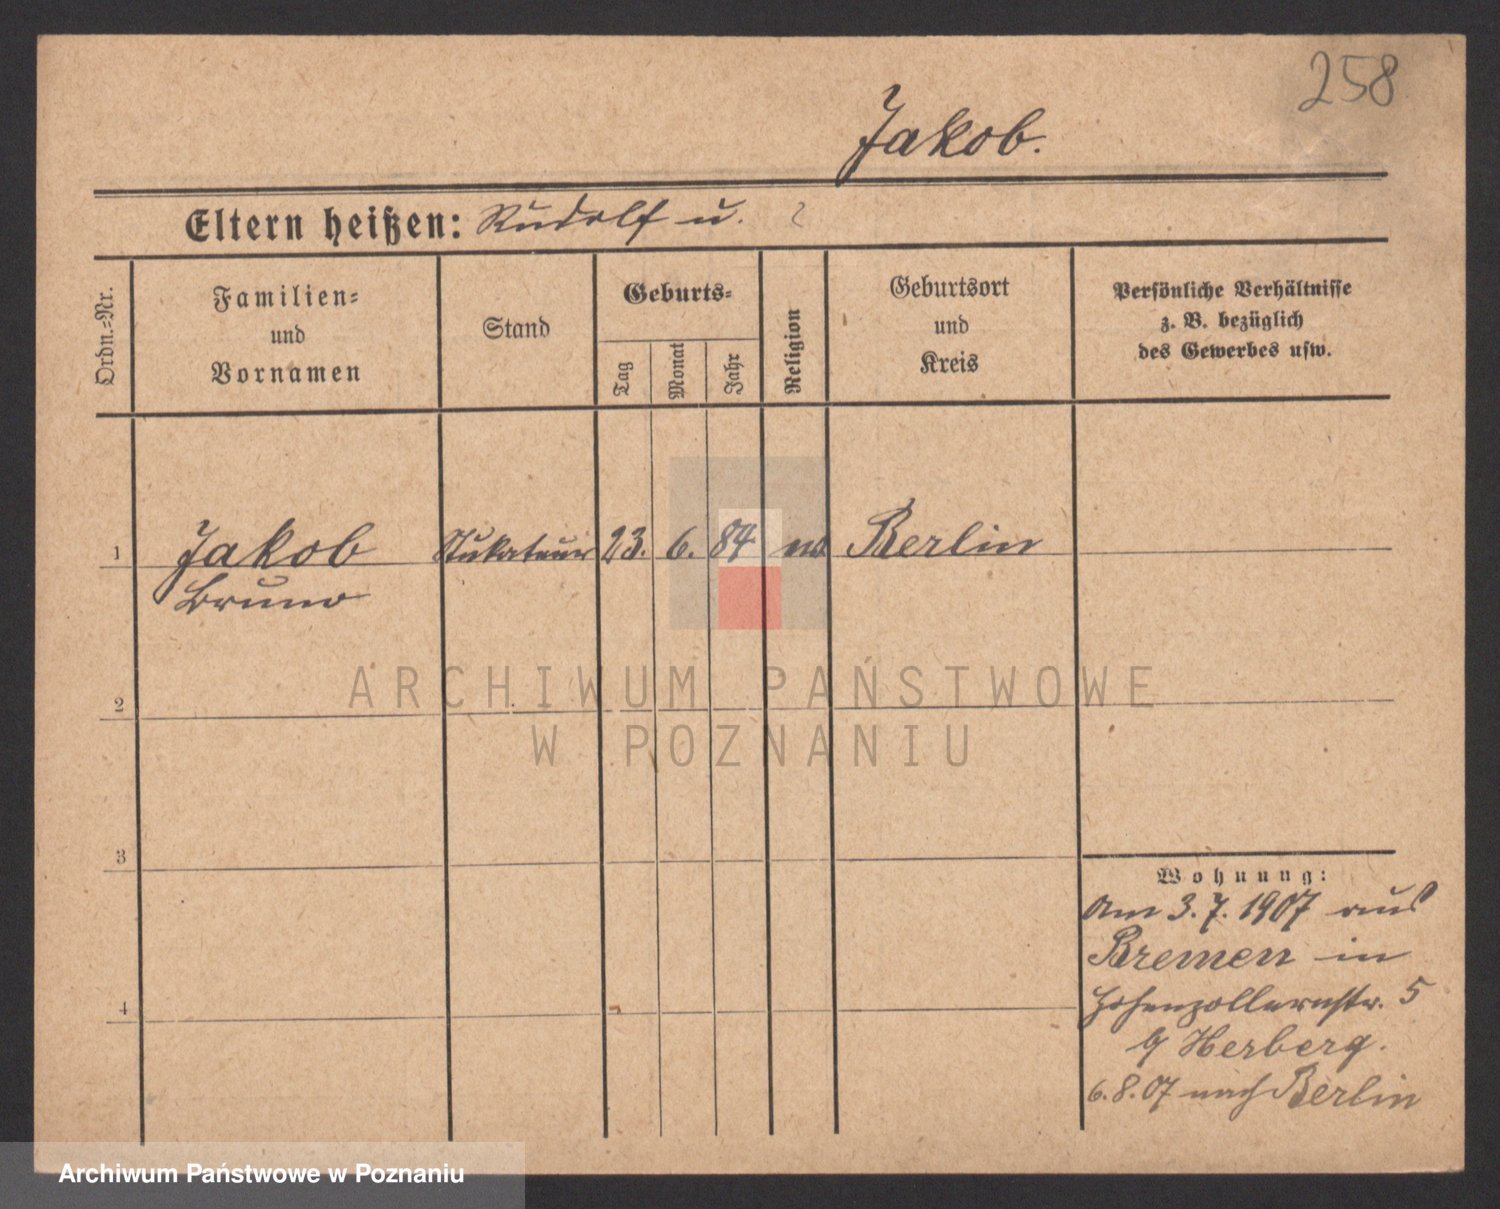 258
Jakob.
Eltern heißen: Rudolf u. ?
Ordn.=Nr.
Familien=
und
Vornamen
Stand
Geburts=
Tag
Monat
Jahr
Religion
Geburtsort
und
Kreis
Persönliche Verhältnisse
z. B. bezüglich
des Gewerbes usw.
1 Jakob Stukateur 23. 6. 84 Berlin
Bruno
2
3
4
Wohnung:
Am 3.7.1907 aus
Bremen in
Hohenzollernstr. 5
Herberg.
6.8.07 nach Berlin
ARCHIWUM PAŃSTWOWE
W POZNANIU
Archiwum Państwowe w Poznaniu